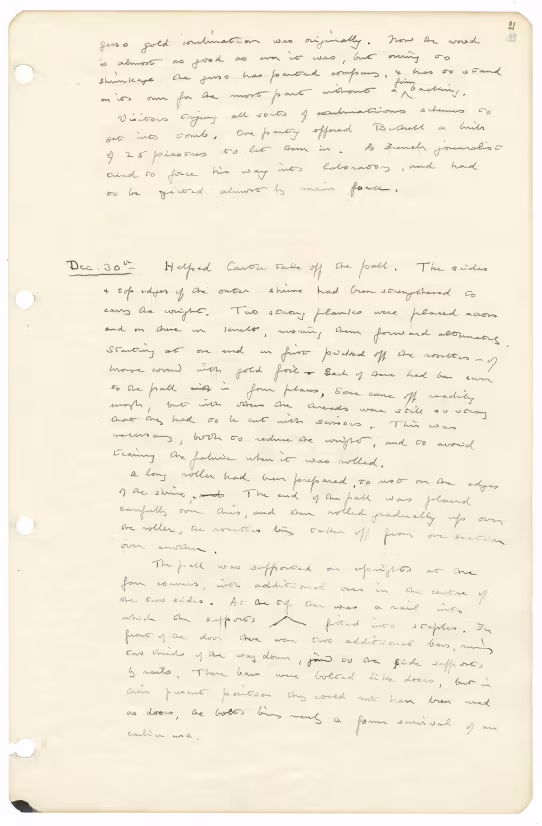 21
gesso gold combination was originally. Now the wood
is almost as good as ever it was, but owing to
shrinkage the gesso has parted company, & has to stand
on its own for the most part without a firm backing.
Visitors trying all sorts of combinations schemes to
get into tomb. One party offered Bethell a bribe
of 25 piastres to let them in. A French journalist
tried to force his way into laboratory, and had
to be ejected almost by main force.
Dec. 30th Helped Carter take off the pall. The sides
& top edges of the outer shrine had been strengthened to
carry the weight. Two strong planks were placed across
and on these we knelt, moving them forward alternately.
Starting at one end we first picked off the rosettes – of
bronze covered with gold foil. Each of these had been sewn
to the pall in four places, some came off readily
enough, but with others the threads were still so strong
that they had to be cut with scissors. This was
necessary, both to reduce the weight, and to avoid
tearing the fabric when it was rolled.
A long roller had been prepared, to rest on the edges
of the shrine, and The end of the pall was placed
carefully over this, and then rolled gradually up over
the roller, the rosettes being taken off from one section
after another.
The pall was supported on uprights at the
four corners, with additional ones in the centre of
the two sides. At the top there was a rail into
which the supports fitted into staples. In
front of the door there were two additional bars,
two thirds of the way down, joined to the side supports
by rails. These bars were bolted like doors, but in
their present position they could not have been used
as doors, the bolts being merely a former survival of an
earlier use.